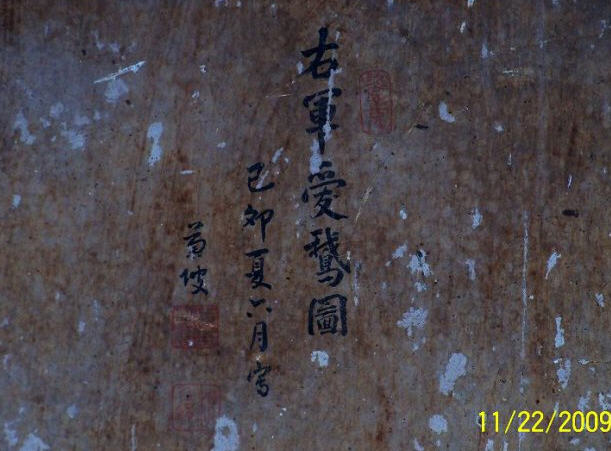 右軍愛鵝圖
己卯夏六月寫
11/22/2009